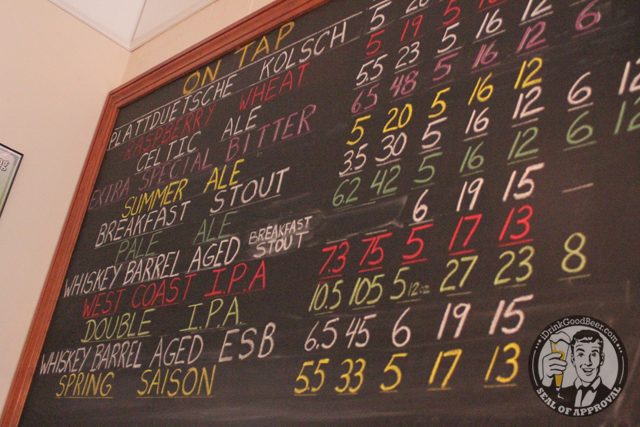 ON TAP
PLATTDUETSCHE KOLSCH 5 20
RASPBERRY WHEAT 5 19 5
CELTIC ALE 5.5 23 5 16 12
EXTRA SPECIAL BITTER 6.5 48 5 16 12 6
SUMMER ALE 5 20 5 16 12
BREAKFAST STOUT 3.5 30 5 16 12 6 12
PALE ALE 6.2 42 5 16 12 6 12
WHISKEY BARREL AGED BREAKFAST STOUT 6 19 15 —
WEST COAST I.P.A 7.3 75 5 17 13
DOUBLE I.P.A 10.5 105 5 12oz 27 23 8
WHISKEY BARREL AGED ESB 6.5 45 6 19 15
SPRING SAISON 5.5 33 5 17 13
iDrinkGoodBeer.com
SEAL OF APPROVAL